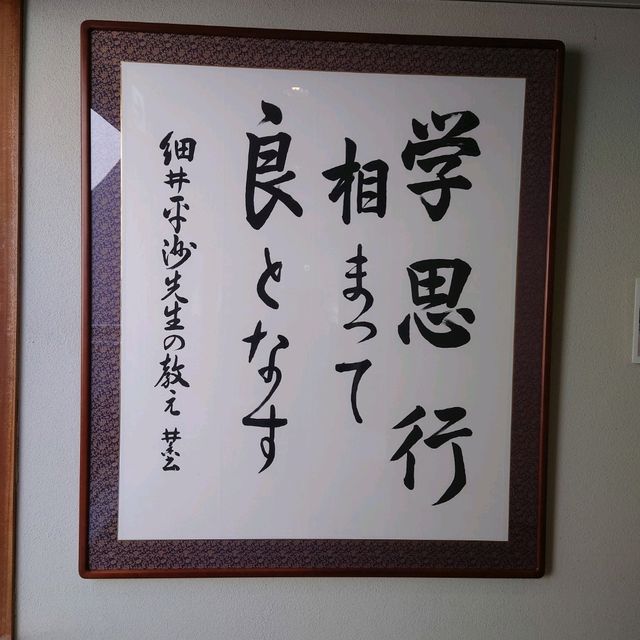 学思行
相まって
良となす
細井平沙先生の教え